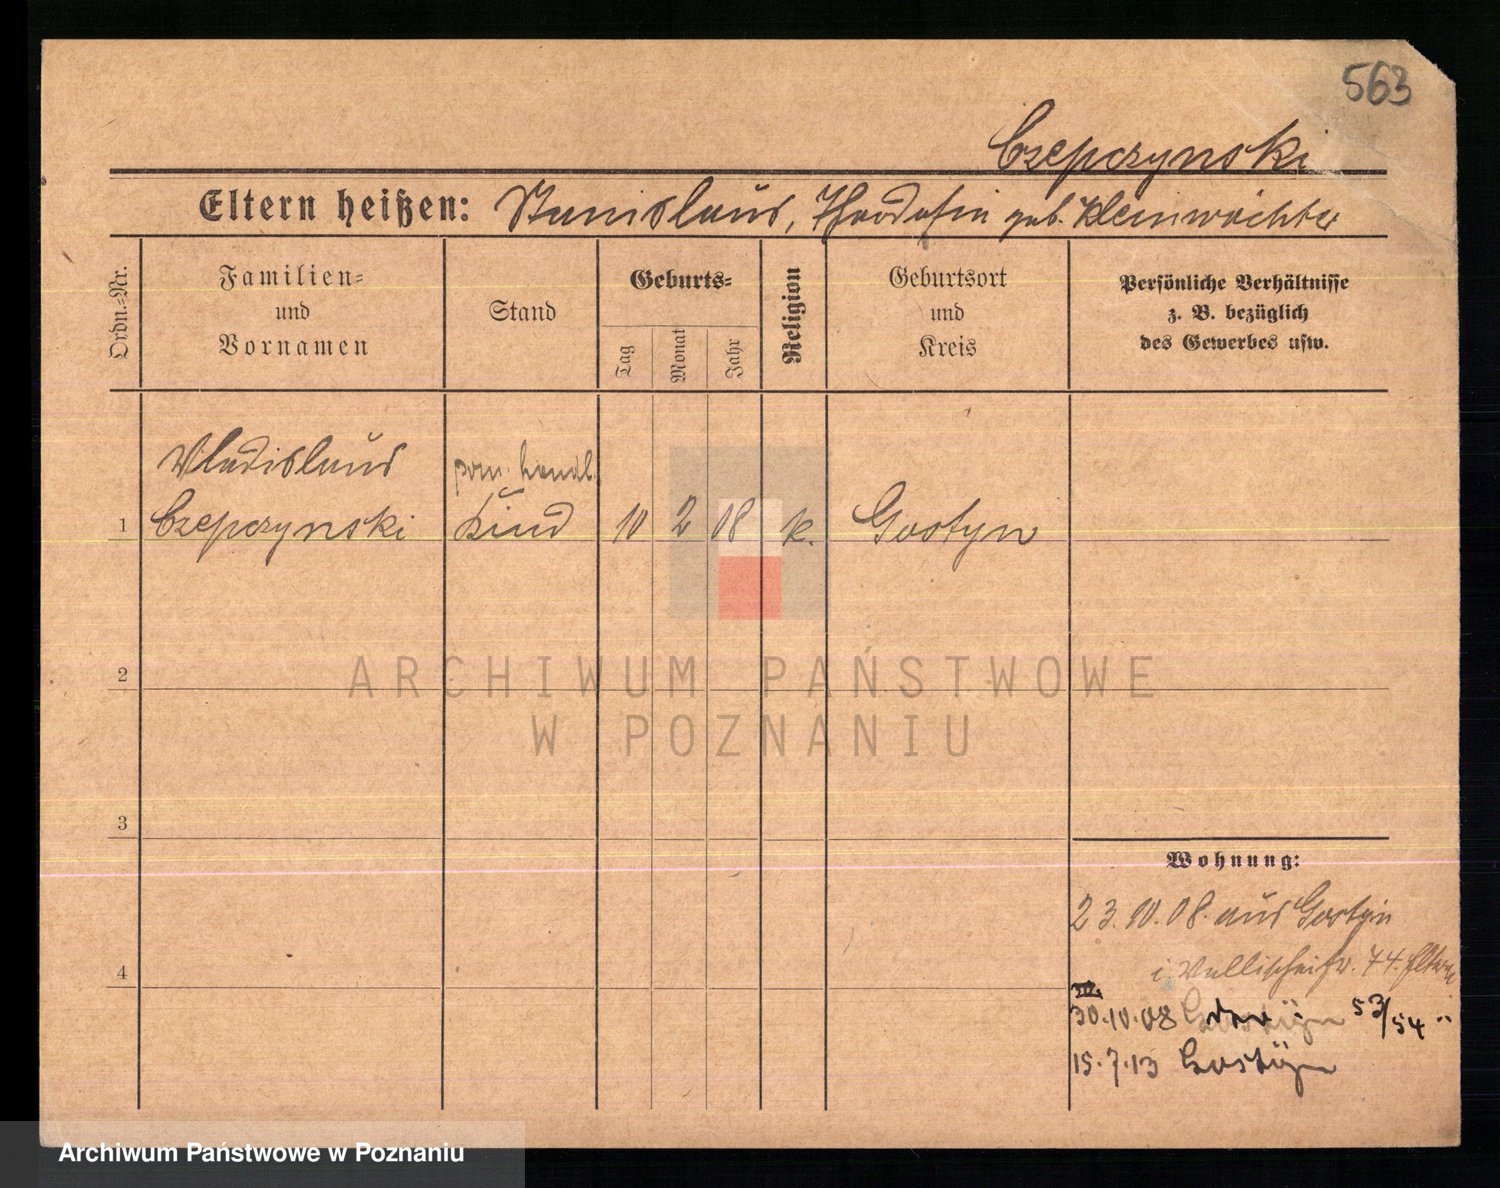 563
Czepczynski
Eltern heißen: Stanislaus, Theodosia geb. Kleinwächter
Ordn.-Nr.
Familien-
und
Vornamen
Stand
Geburts-
Tag
Monat
Jahr
Religion
Geburtsort
und
Kreis
Persönliche Verhältnisse
z. B. bezüglich
des Gewerbes usw.
Vladislaus
1 Czepczynski Kind 10 2 08 k. Gostyn
2
3
4
Wohnung:
23.10.08. aus Gostyn
i Wallischeistr. 74. Eltern
30.10.08 53/54 "
15.7.13 Gostyn
ARCHIWUM PAŃSTWOWE
W POZNANIU
Archiwum Państwowe w Poznaniu